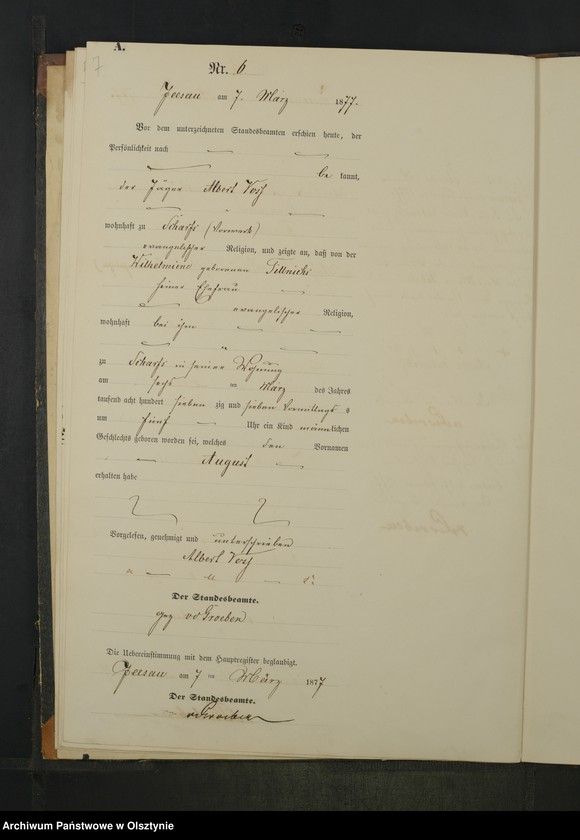 A.
7
Nr. 6
Jeesau am 7. März 1877.
Vor dem unterzeichneten Standesbeamten erschien heute, der
Persönlichkeit nach
be kannt,
der Jäger Albert
wohnhaft zu Scharfs (Vorwerk)
evangelischer Religion, und zeigte an, daß von der
Wilhelmine geborenen
seiner Ehefrau
evangelischer Religion,
wohnhaft bei ihm
zu Scharfs in seiner Wohnung
am sechs ten März des Jahres
tausend acht hundert sieben zig und sieben Vormittags
um fünf Uhr ein Kind männlichen
Geschlechts geboren worden sei, welches den Vornamen
August
erhalten habe
Vorgelesen, genehmigt und unterschrieben
Albert
Der Standesbeamte.
gez vd Groeben
Die Uebereinstimmung mit dem Hauptregister beglaubigt.
Jeesau am 7 ten März 1877
Der Standesbeamte.
vdGroeben
Archiwum Państwowe w Olsztynie